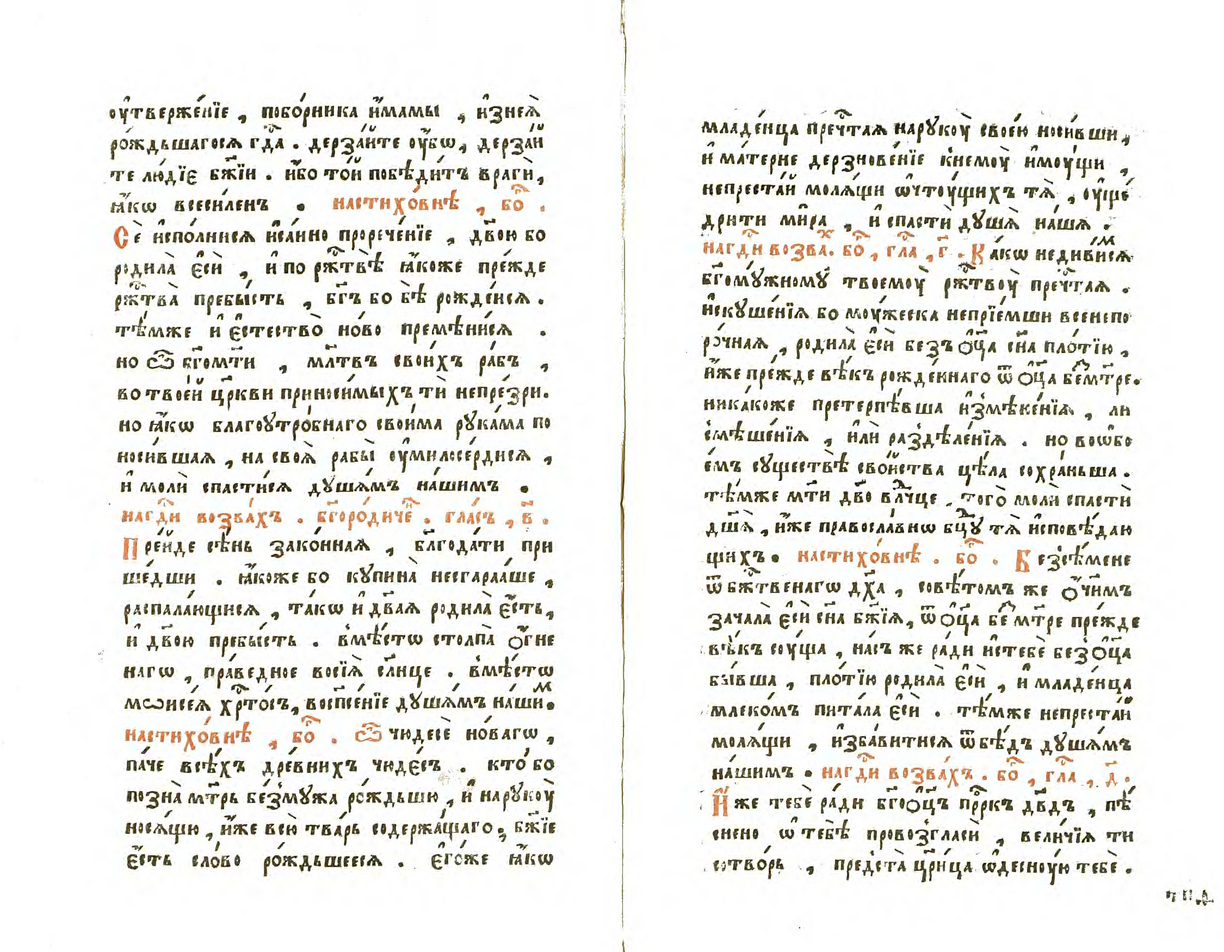 оу҆тверже́нїе , побо́рника и҆́мамы , и҆знеѧ̀
ро́ждьшагосѧ гд҇а . дерза́ите оу҆́бѡ , дерза́и
те лю́дїє бж҃їи . и҆́бо то́и победи́тъ враги̑,
ꙗ҆́кѡ всеси́ленъ . настихо́внѣ , бо҇ .
Сѐ и҆спо́лнисѧ и҆са́ино прорече́нїе , дв҃ою бо
родила̀ є҆сѝ , и҆ по рж҇твѣ̀ ꙗ҆́коже пре́жде
рж҇тва̀ пребы́сть , бг҃ъ бо бѣ̀ рожде́исѧ .
тѣ́мже и҆ є҆стество̀ но́во премѣни́сѧ .
но ѽ бг҃ом҃ти , мл҃твъ свои́хъ ра́бъ ,
во твое́й цр҃кви приноси́мыхъ тѝ непре́зри.
но ꙗ҆́кѡ благоутро́бнаго свои́ма рука́ма по
носи́вшаѧ , на своѧ̀ рабы̀ оу҆милосе́рдисѧ ,
и҆ молѝ спасти́сѧ душа́мъ на́шимъ .
нагд҇и возва́хъ . бг҃оро́диче҇ . гла́съ , в҃ .
Пре́йде сѣ́нь зако́ннаѧ , благода́ти при
ше́дши . ꙗ҆́коже бо купина̀ несгара́аше ,
распала́ющисѧ , та́кѡ и҆ дв҃аѧ родила̀ є҆́сть,
и҆ дв҃ою пребы́сть . вмѣ́стѡ столпа̀ ѻ҆́гне
нагѡ , пра́ведное восїѧ̀ сл҃нце . вмѣ́стѡ
мѡисе́ѧ хр҇то́съ, воспсе́нїе душа́мъ на́ши м.
настихо́внѣ , бо҇ . ѽ чюдесѐ но́вагѡ ,
па́че всѣ́хъ дре́внихъ чюде́съ . кто̀ бо
позна̀ мт҃рь безму́жа ро́ждьшю , и҆ нарукоу̀
нося́щю , и҆́же всю̀ тва́рь содержа́щаго, бж҃їе
є҆́сть сло́во ро́ждьшеесѧ . є҆го́же ꙗ҆́кѡ
младе́нца пречⷭ҇таѧ нарукоу̀ свое́ю носи́вши ,
и҆ ма́терне дерзнове́нїе кнемоу̀ и҆моу́щи ,
непреста́й молѧ́щи ѡ҆чтоу́щихъ тѧ̀ , оу҆ще́
дрити ми́ра , и҆ спастѝ ду́шѧ на́шѧ .
нагд҇и возва҇х . бо҇ , гла҇ , г҃ . Ка́кѡ недиви́мсѧ
бг҃ому́жному твоемоу̀ рж҇твоу̀ пречⷭ҇таѧ .
и҆скуше́нїѧ бо моу́жеска непрїе́мши всенепо
ро́чнаѧ , родила̀ є҆сѝ безъ ѻ҆ц҃а̀ сн҃а пло́тїю ,
и҆́же пре́жде вѣ́къ рожде́ннаго ѿ ѻ҆ц҃а̀ без мт҃ре.
ника́коже претерпѣ́вша и҆змѣне́нїѧ , ли
смѣше́нїѧ , и҆лѝ раздѣле́нїѧ . но воѡбо
е́мъ существѣ̀ сво́йства цѣ́ла сохра́ньша .
тѣ́мже мт҃и дв҃о влⷣчце , того̀ молѝ спастѝ
дш҃ѧ̀ , и҆́же правосла́внѡ бц҃у тѧ̀ и҆сповѣ́даю
щихъ . настихо́внѣ . бо҇ . Безсѣ́мене
ѿ бж҃твенагѡ дх҃а , совѣ́томъ же ѻ҆́ч҃имъ
зачала̀ є҆сѝ сн҃а бж҃їѧ, ѿ ѻ҆ц҃а̀ без мт҃ре пре́жде
вѣ́къ соу́ща , на́съ же ра́ди и҆стебѐ без ѻ҆ц҃а̀
бы́вша , пло́тїю родила̀ є҆сѝ , и҆ младе́нца
млеко́мъ пита́ла є҆сѝ . тѣ́мже непреста́й
молѧ́щи , и҆зба́витисѧ ѿбѣ́дъ душа́мъ
на́шимъ . нагд҇и возва́хъ . бо҇ , гла҇ , д҃ .
И҆́же тебѐ ра́ди бг҃оо҆ц҃ъ пр҇ркъ дв҃дъ , пѣ́
снено ѡ҆ тебѣ̀ провозгласѝ , вели́чїѧ ти
сотво́рь , предста̀ цр҃и́ца ѡ҆десноу́ю тебѐ .